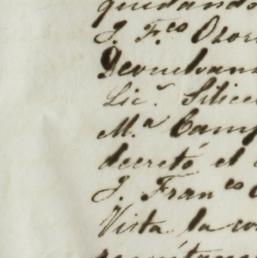 quedando
J. F.co Osor
Devuelvans
Lic.o Silice
M.a Camp
decretó el
J. Fran.co
Vista la